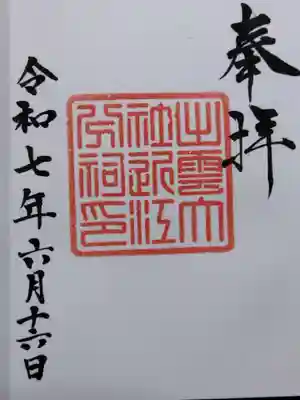 奉拝
出雲大
社近江
分祠印
令和七年六月十六日